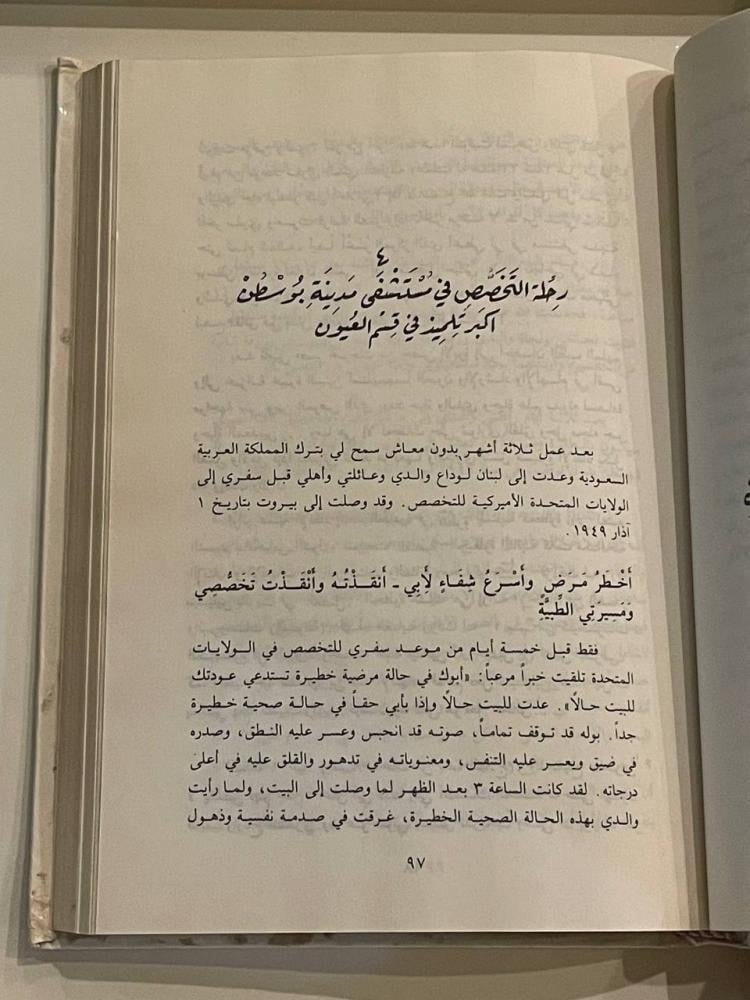 ٤
رحلة التَّخَصُّصِ في مُسْتَشْفَى مَدِينَةِ بُوسْطُنْ
اكبر تِلميذ في قِسْم العُيون
بعد عمل ثلاثة أشهر بدون معاش سمح لي بترك المملكة العربية
السعودية وعدت إلى لبنان لوداع والدي وعائلتي وأهلي قبل سفري إلى
الولايات المتحدة الأميركية للتخصص. وقد وصلت إلى بيروت بتاريخ ١
آذار ١٩٤٩.
أَخْطَرُ مَرَضٍ وأَسْرَعُ شِفَاءٍ لأَبِي - أَنقَذْتُهُ وأَنْقَذْتُ تَخَصُّصِي
وَمَسِيرَتِي الطِّبِيَّةِ
فقط قبل خمسة أيام من موعد سفري للتخصص في الولايات
المتحدة تلقيت خبراً مرعباً: «أبوك في حالة مرضية خطيرة تستدعي عودتك
للبيت حالاً». عدت للبيت حالاً وإذا بأبي حقاً في حالة صحية خطيرة
جداً. بوله قد توقف تماماً، صوته قد انحبس وعسر عليه النطق، وصدره
في ضيق ويعسر عليه التنفس، ومعنوياته في تدهور والقلق عليه في أعلى
درجاته. لقد كانت الساعة ٣ بعد الظهر لما وصلت إلى البيت، ولما رأيت
والدي بهذه الحالة الصحية الخطيرة، غرقت في صدمة نفسية وذهول
٩٧